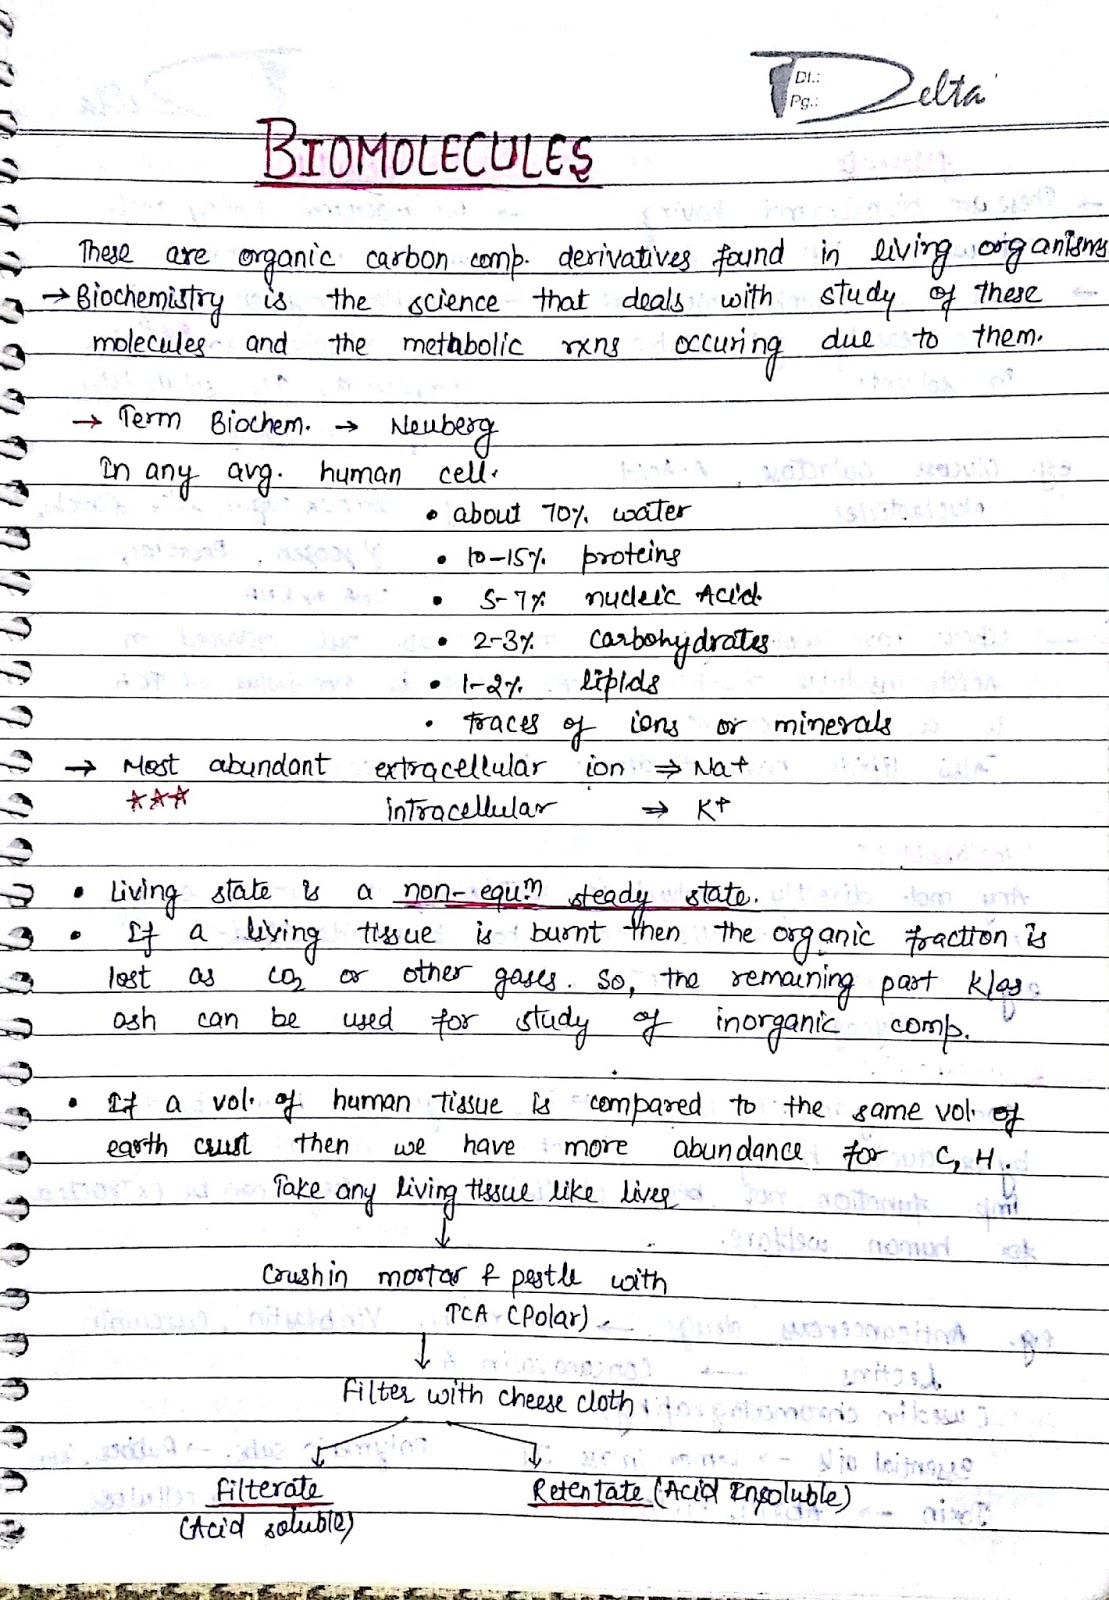 Dt.:
Pg.:
Delta
BIOMOLECULES
These are organic carbon comp. derivatives found in living organisms
→ Biochemistry is the science that deals with study of these
molecules and the metabolic rxns occuring due to them.
→ Term Biochem. → Neuberg
In any avg. human cell.
• about 70% water
• 10-15% proteins
• 5-7% nucleic Acid.
• 2-3% carbohydrates
• 1-2% lipids
• traces of ions or minerals
→ Most abundant extracellular ion ⇒ Na+
☆☆☆ intracellular ⇒ K+
• Living state is a non-equm steady state.
• If a living tissue is burnt then the organic fraction is
lost as CO2 or other gases. So, the remaining part k/as
ash can be used for study of inorganic comp.
• If a vol. of human tissue is compared to the same vol. of
earth crust then we have more abundance for C, H.
Take any living tissue like liver
↓
Crush in mortar & pestle with
TCA (Polar).
↓
Filter with cheese cloth.
Filterate Retentate (Acid Insoluble)
(Acid soluble)